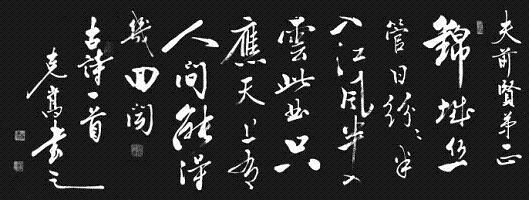 賢弟正
錦城丝
管日紛々半
入江風半入
雲此曲只
應天上有
人間能得
幾回聞
古詩一首
書之